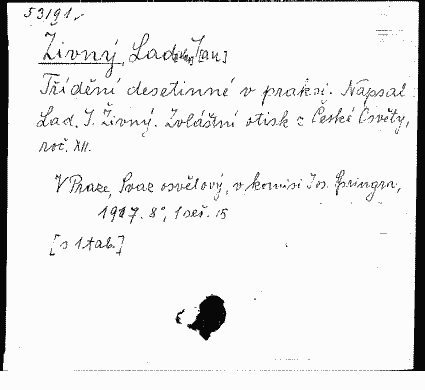 53191.
Živný, Lad[islav] J[an]
Třídění desetinné v praksi. Napsal
Lad. J. Živný. Zvláštní otisk z České Osvěty,
roč. XII.
V Praze, Svaz osvětový, v komisi Jos. Springra,
1917. 8°, 1 seš. 15
[s 1 tab.]